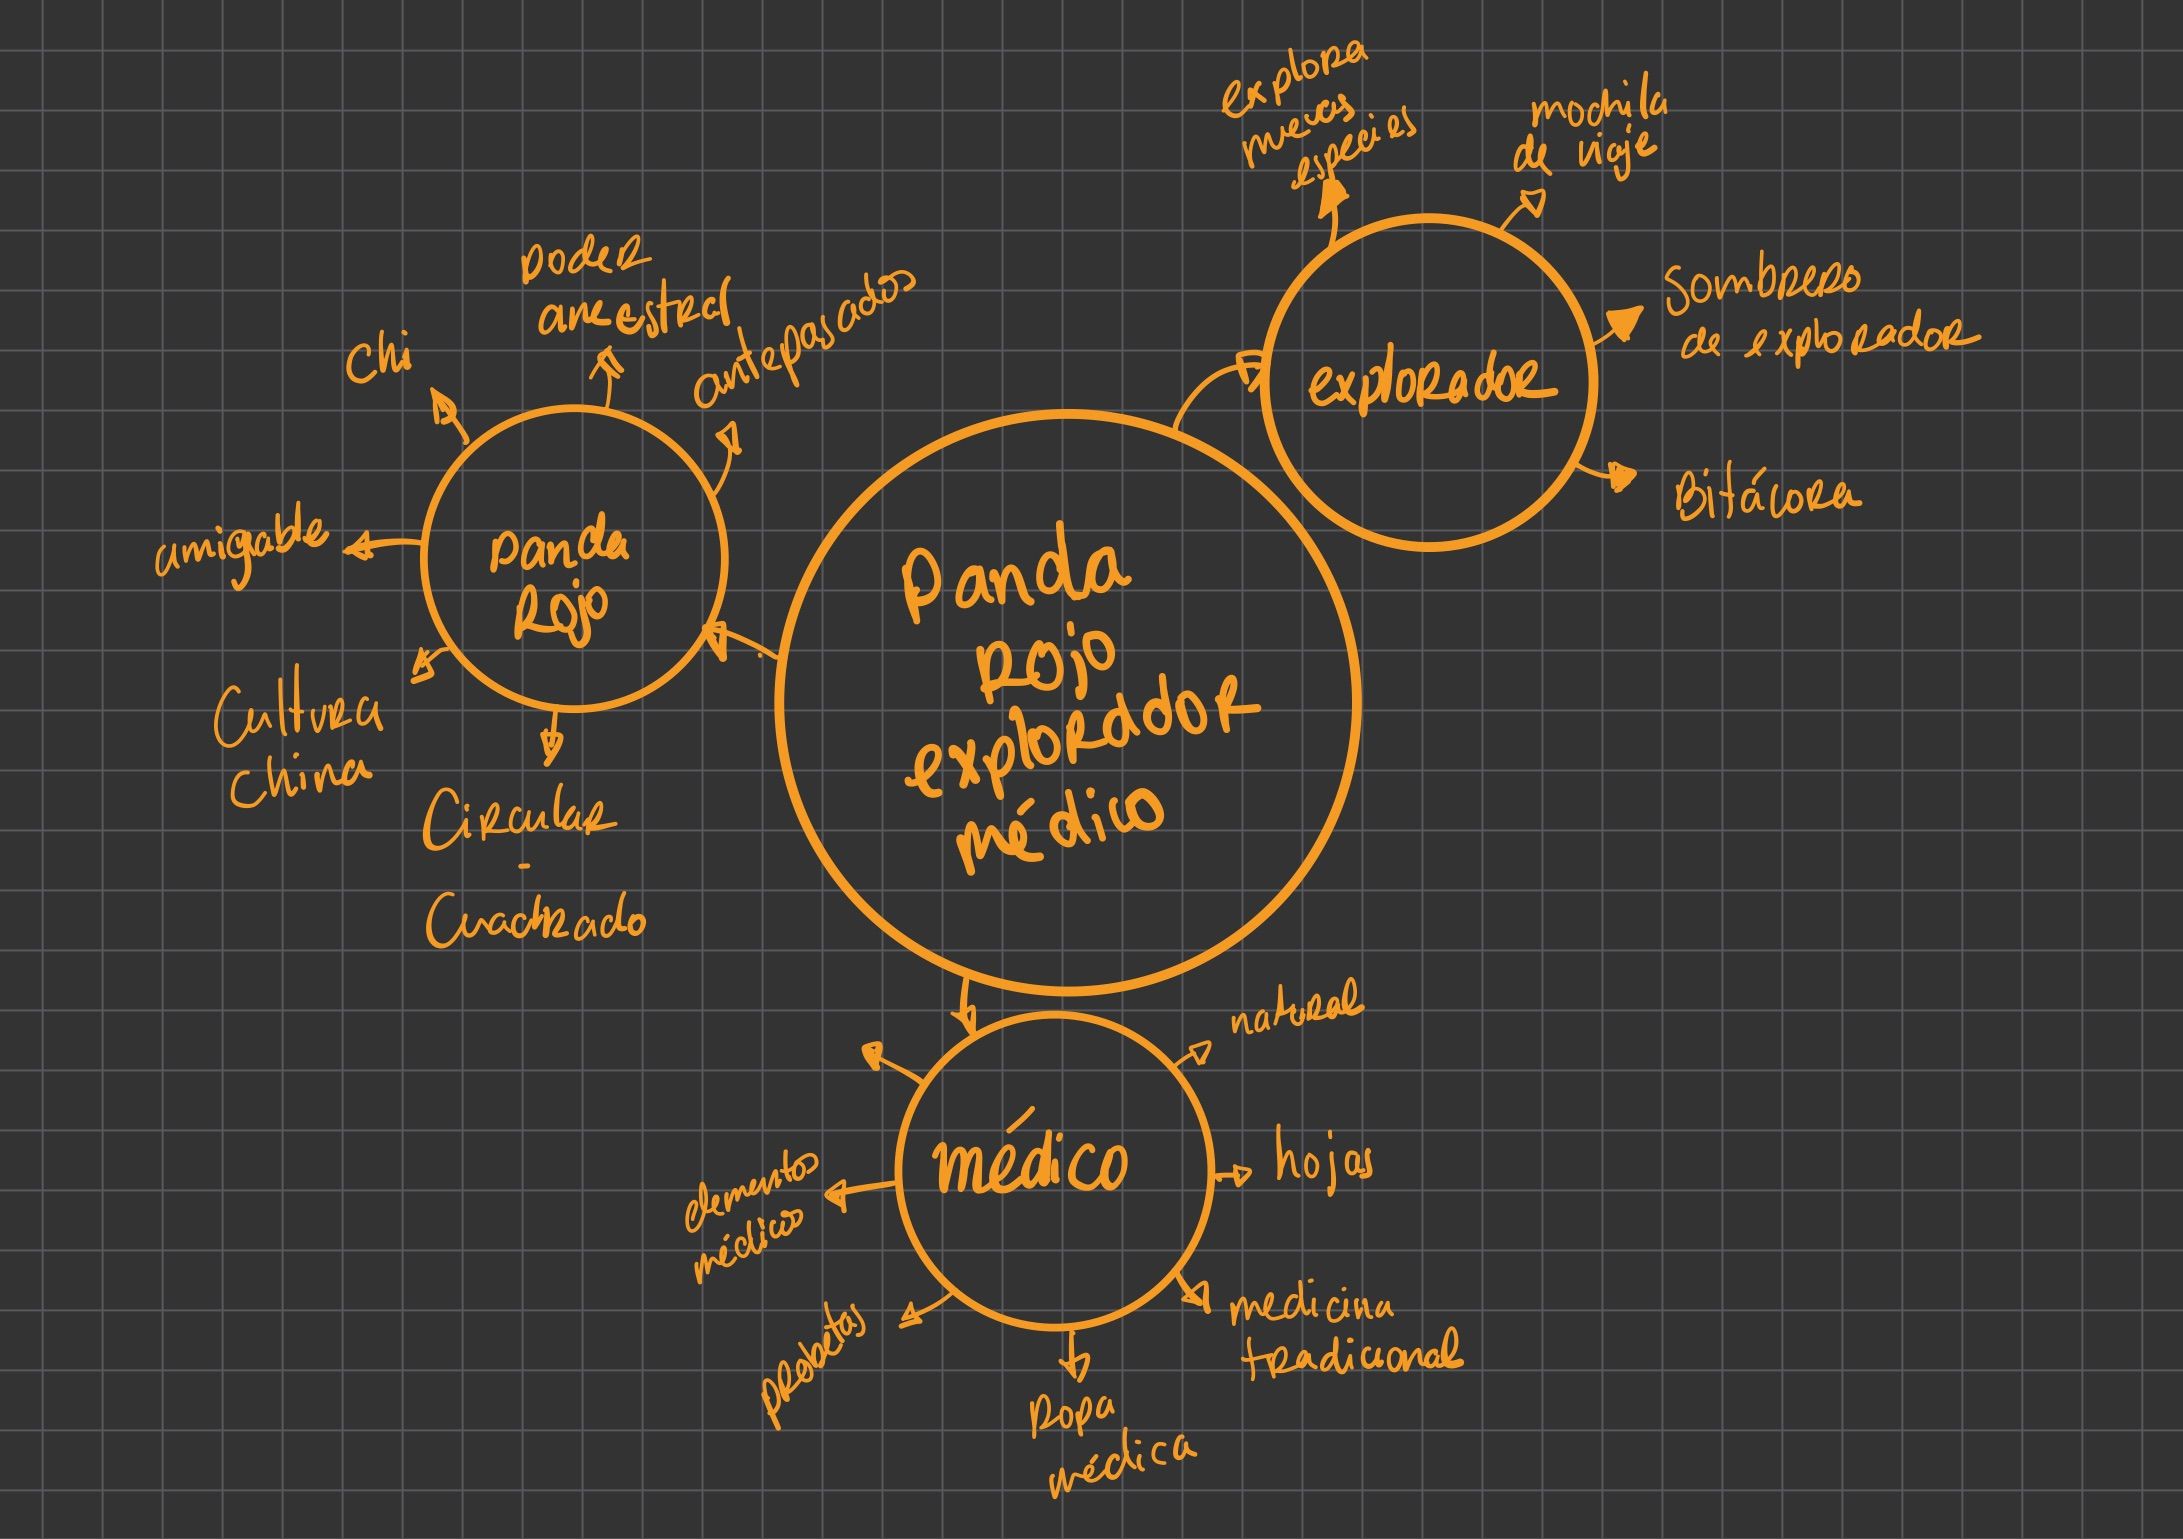 explora
nuevas
especies
mochila
de viaje
Sombrero
de explorador
explorador
Bitácora
poder
ancestral
antepasados
Chi
amigable
panda
Rojo
Cultura
China
Circular
-
Cuadrado
Panda
Rojo
explorador
médico
natural
médico
hojas
elementos
médicos
medicina
tradicional
probetas
Ropa
médica